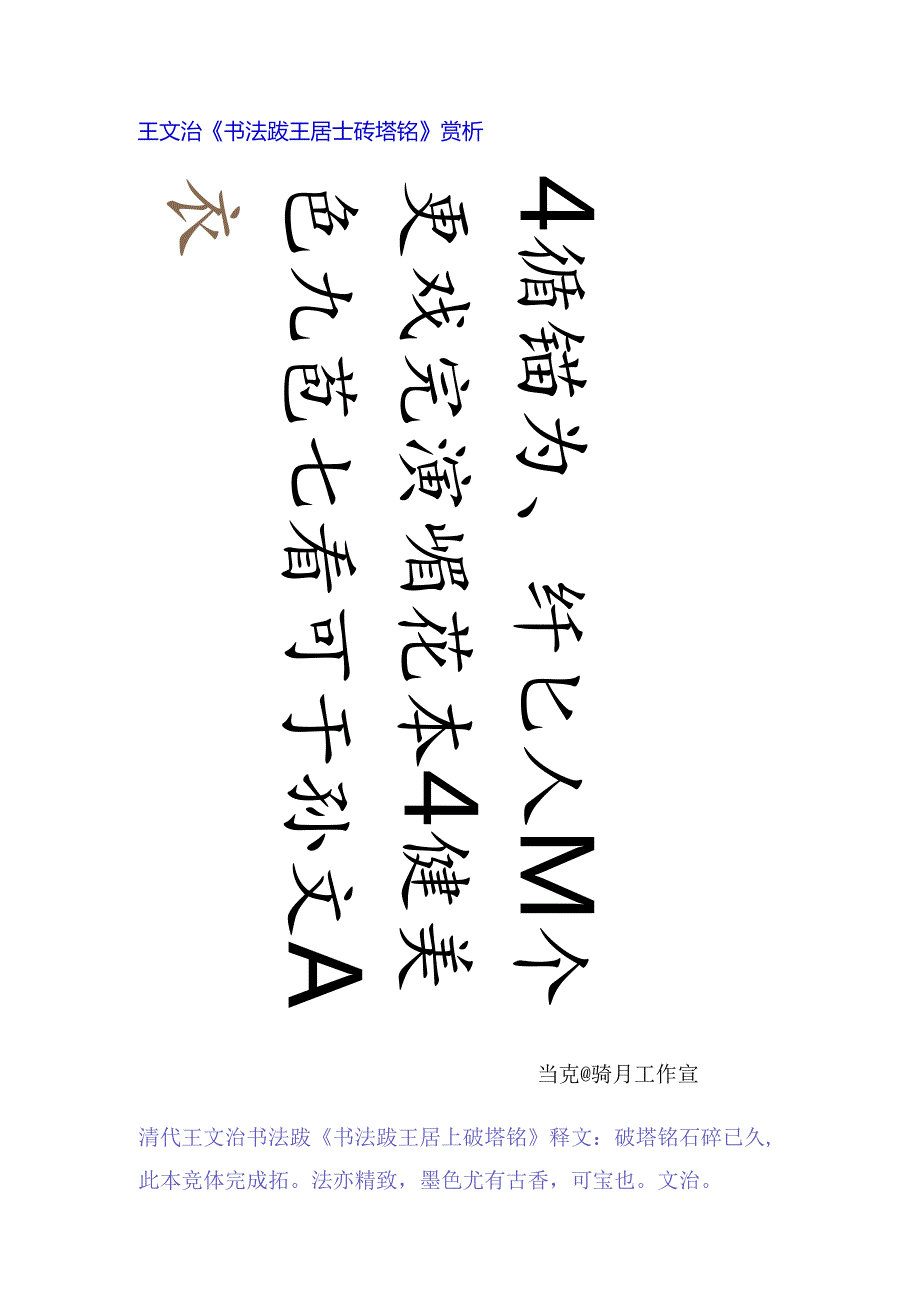 王文治《书法跋王居士砖塔铭》赏析
4循锚为、纤匕人M个
更戏完演嵋花本4健美
色九苞七看可于孙文A
衣
当克@骑月工作宣
清代王文治书法跋《书法跋王居上破塔铭》释文：破塔铭石碎已久,
此本竞体完成拓。法亦精致，墨色尤有古香，可宝也。文治。